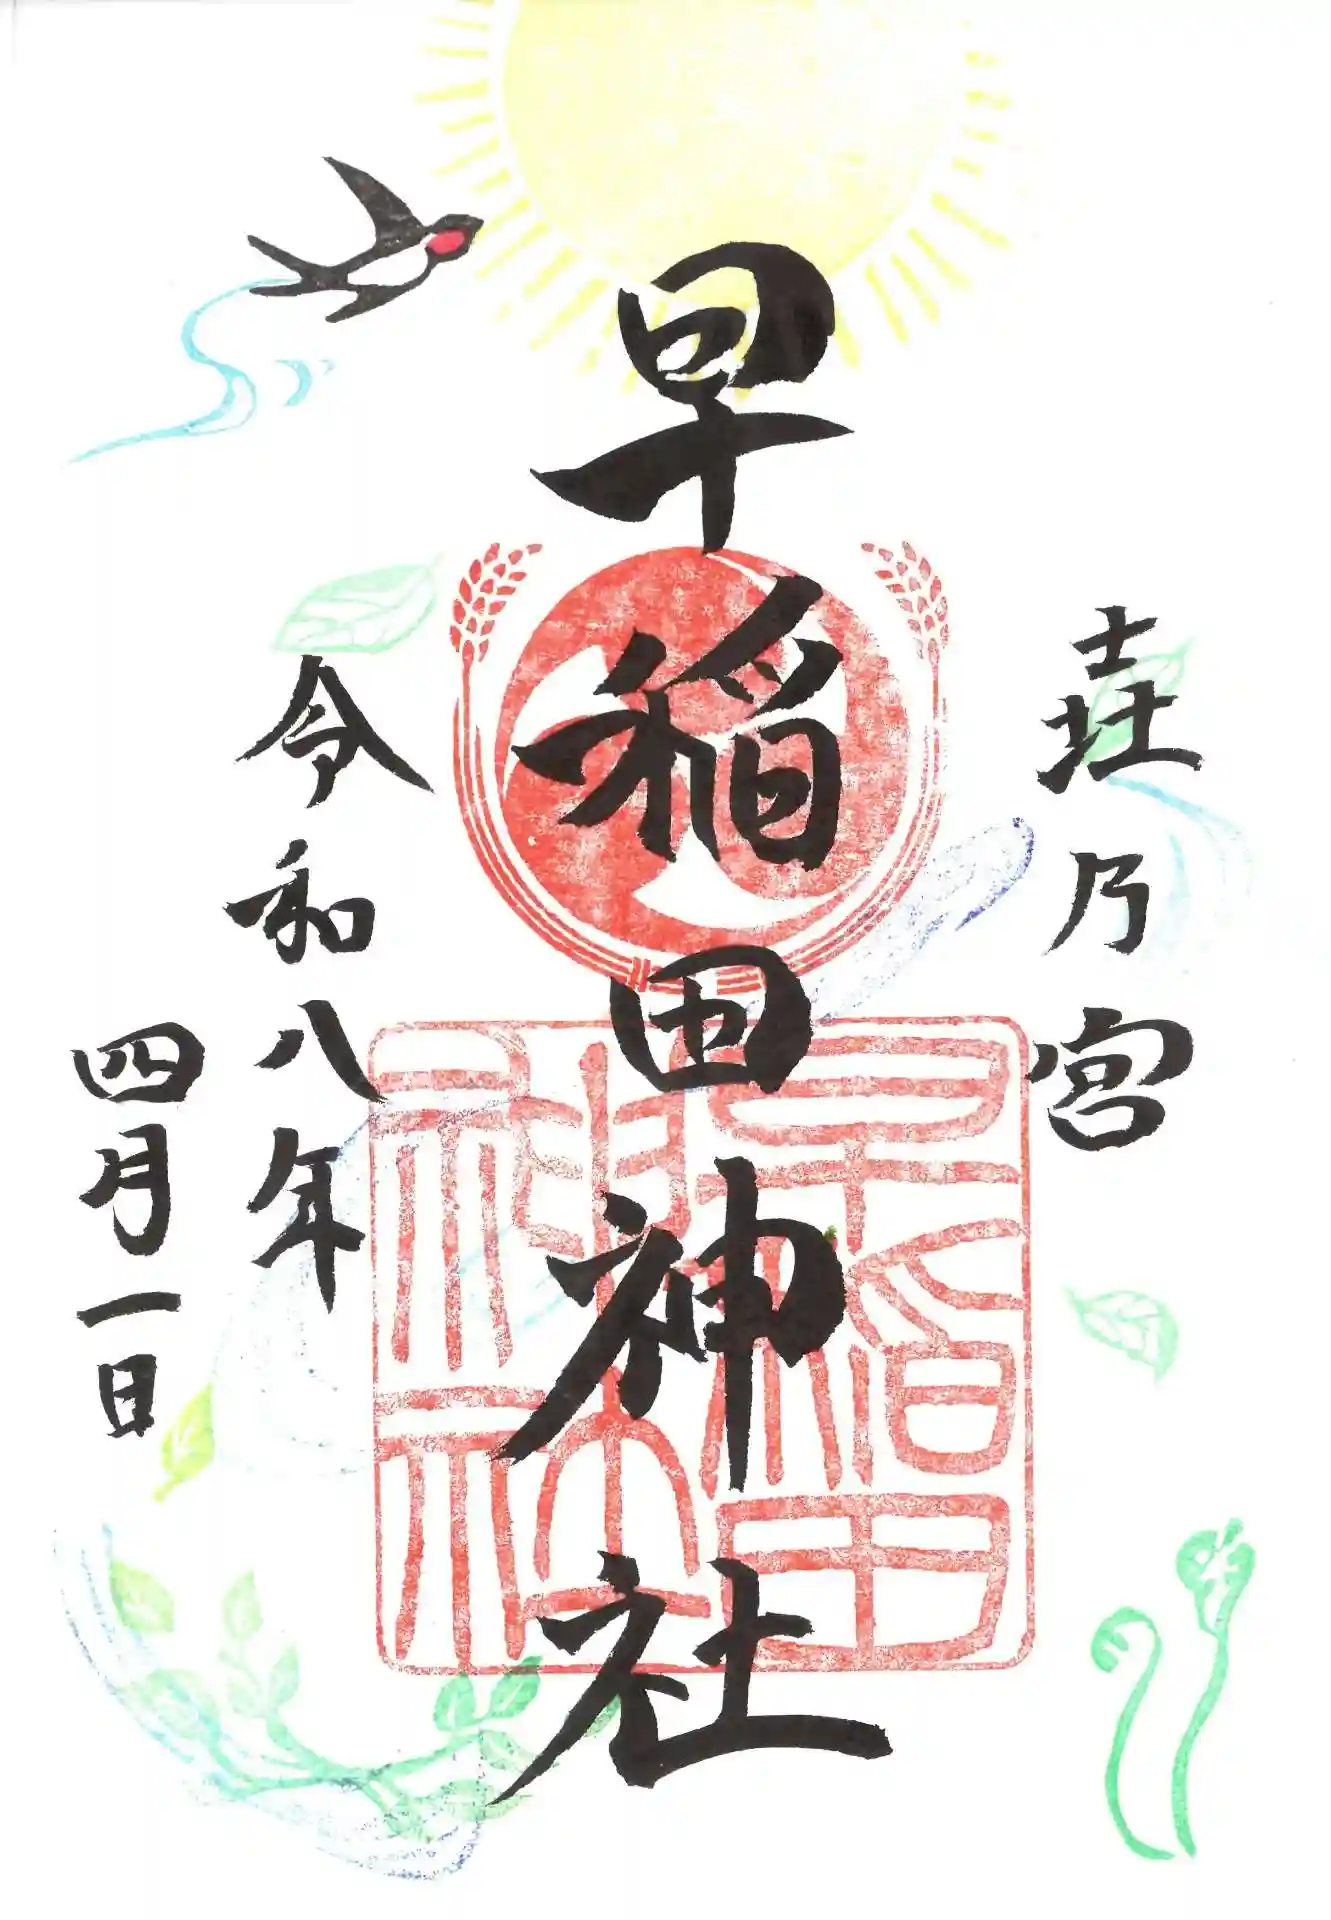 乃宮
早稲田神社
令和八年
四月一日
早稲田
神社